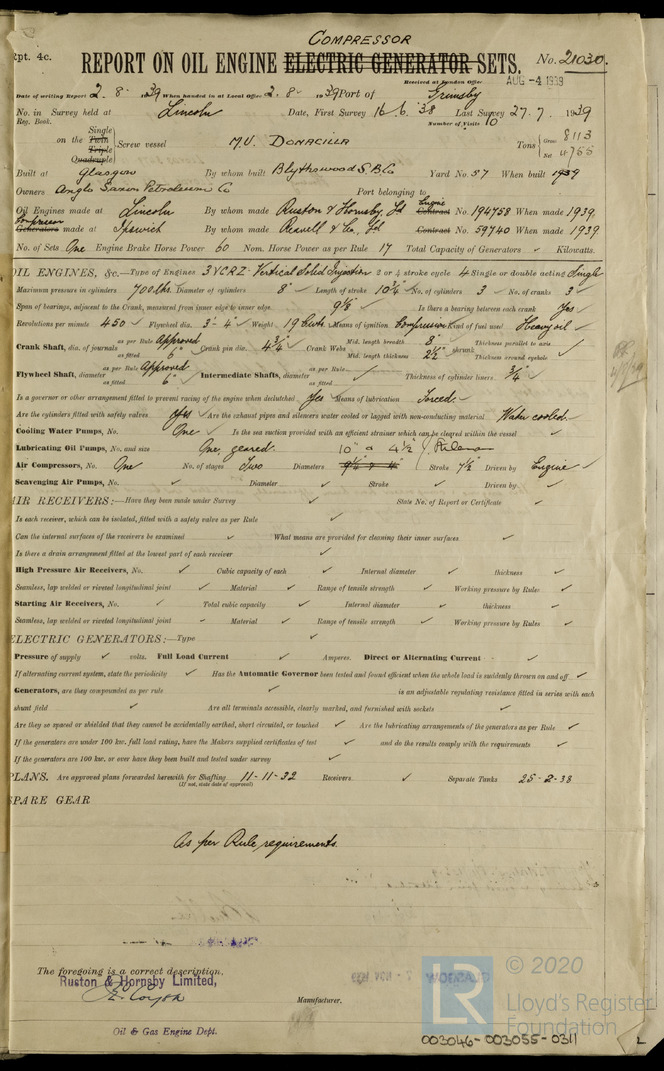 COMPRESSOR
Rpt. 4c. REPORT ON OIL ENGINE ELECTRIC GENERATOR SETS. No. 21030.
Received at London Office AUG -4 1939
Date of writing Report 2. 8. 1939 When handed in at Local Office 2. 8. 1939 Port of Grimsby
No. in Survey held at Lincoln Date, First Survey 16. 6. '38 Last Survey 27. 7. 1939
Reg. Book. Number of Visits 10
on the Single Twin Triple Quadruple Screw vessel M.V. DONACILLA Tons Gross 8113 Net 4755
Built at Glasgow By whom built Blythswood S.B. Co Yard No. 57 When built 1939
Owners Anglo Saxon Petroleum Co Port belonging to
Oil Engines made at Lincoln By whom made Ruston & Hornsby, Ld Engine Contract No. 194758 When made 1939.
Compressor Generators made at Ipswich By whom made Reavell & Co., Ld Contract No. 59740 When made 1939
No. of Sets One Engine Brake Horse Power 60 Nom. Horse Power as per Rule 17 Total Capacity of Generators ✓ Kilowatts.
OIL ENGINES, &c.—Type of Engines 3 VCRZ. Vertical Solid Injection 2 or 4 stroke cycle 4 Single or double acting Single
Maximum pressure in cylinders 700 lbs. Diameter of cylinders 8" Length of stroke 10¾" No. of cylinders 3 No. of cranks 3
Span of bearings, adjacent to the Crank, measured from inner edge to inner edge. 9⅛" Is there a bearing between each crank Yes
Revolutions per minute 450 Flywheel dia. 3'-4" Weight 19 cwts Means of ignition Compression Kind of fuel used Heavy oil
Crank Shaft, dia. of journals as per Rule Approved as fitted 6" Crank pin dia. 4¾" Crank Webs Mid. length breadth 8" Mid. length thickness 2½" shrunk Thickness parallel to axis Thickness around eyehole ✓
Flywheel Shaft, diameter as per Rule Approved as fitted 6" Intermediate Shafts, diameter as per Rule as fitted ✓ Thickness of cylinder liners ¾"
Is a governor or other arrangement fitted to prevent racing of the engine when declutched Yes Means of lubrication Forced
Are the cylinders fitted with safety valves Yes Are the exhaust pipes and silencers water cooled or lagged with non-conducting material Water cooled
Cooling Water Pumps, No. One Is the sea suction provided with an efficient strainer which can be cleared within the vessel ✓
Lubricating Oil Pumps, No. and size One, geared.
Air Compressors, No. One No. of stages Two Diameters 10" & 4½" Stroke 7½ Driven by Engine
Scavenging Air Pumps, No. ✓ Diameter ✓ Stroke ✓ Driven by ✓
AIR RECEIVERS:—Have they been made under Survey ✓ State No. of Report or Certificate ✓
Is each receiver, which can be isolated, fitted with a safety valve as per Rule ✓
Can the internal surfaces of the receivers be examined ✓ What means are provided for cleaning their inner surfaces ✓
Is there a drain arrangement fitted at the lowest part of each receiver ✓
High Pressure Air Receivers, No. ✓ Cubic capacity of each ✓ Internal diameter ✓ thickness ✓
Seamless, lap welded or riveted longitudinal joint ✓ Material ✓ Range of tensile strength ✓ Working pressure by Rules ✓
Starting Air Receivers, No. ✓ Total cubic capacity ✓ Internal diameter ✓ thickness ✓
Seamless, lap welded or riveted longitudinal joint ✓ Material ✓ Range of tensile strength ✓ Working pressure by Rules ✓
ELECTRIC GENERATORS:—Type ✓
Pressure of supply ✓ volts. Full Load Current ✓ Amperes. Direct or Alternating Current ✓
If alternating current system, state the periodicity ✓ Has the Automatic Governor been tested and found efficient when the whole load is suddenly thrown on and off ✓
Generators, are they compounded as per rule ✓ is an adjustable regulating resistance fitted in series with each
shunt field ✓ Are all terminals accessible, clearly marked, and furnished with sockets ✓
Are they so spaced or shielded that they cannot be accidentally earthed, short circuited, or touched ✓ Are the lubricating arrangements of the generators as per Rule ✓
If the generators are under 100 kw. full load rating, have the Makers supplied certificates of test ✓ and do the results comply with the requirements ✓
If the generators are 100 kw. or over have they been built and tested under survey ✓
PLANS. Are approved plans forwarded herewith for Shafting 11-11-32 Receivers ✓ Separate Tanks 25-2-38
(If not, state date of approval)
SPARE GEAR
As per Rule requirements.
The foregoing is a correct description,
Ruston & Hornsby Limited,
Manufacturer.
Oil & Gas Engine Dept.
LR © 2020
Lloyd's Register
Foundation
003046-003055-0311